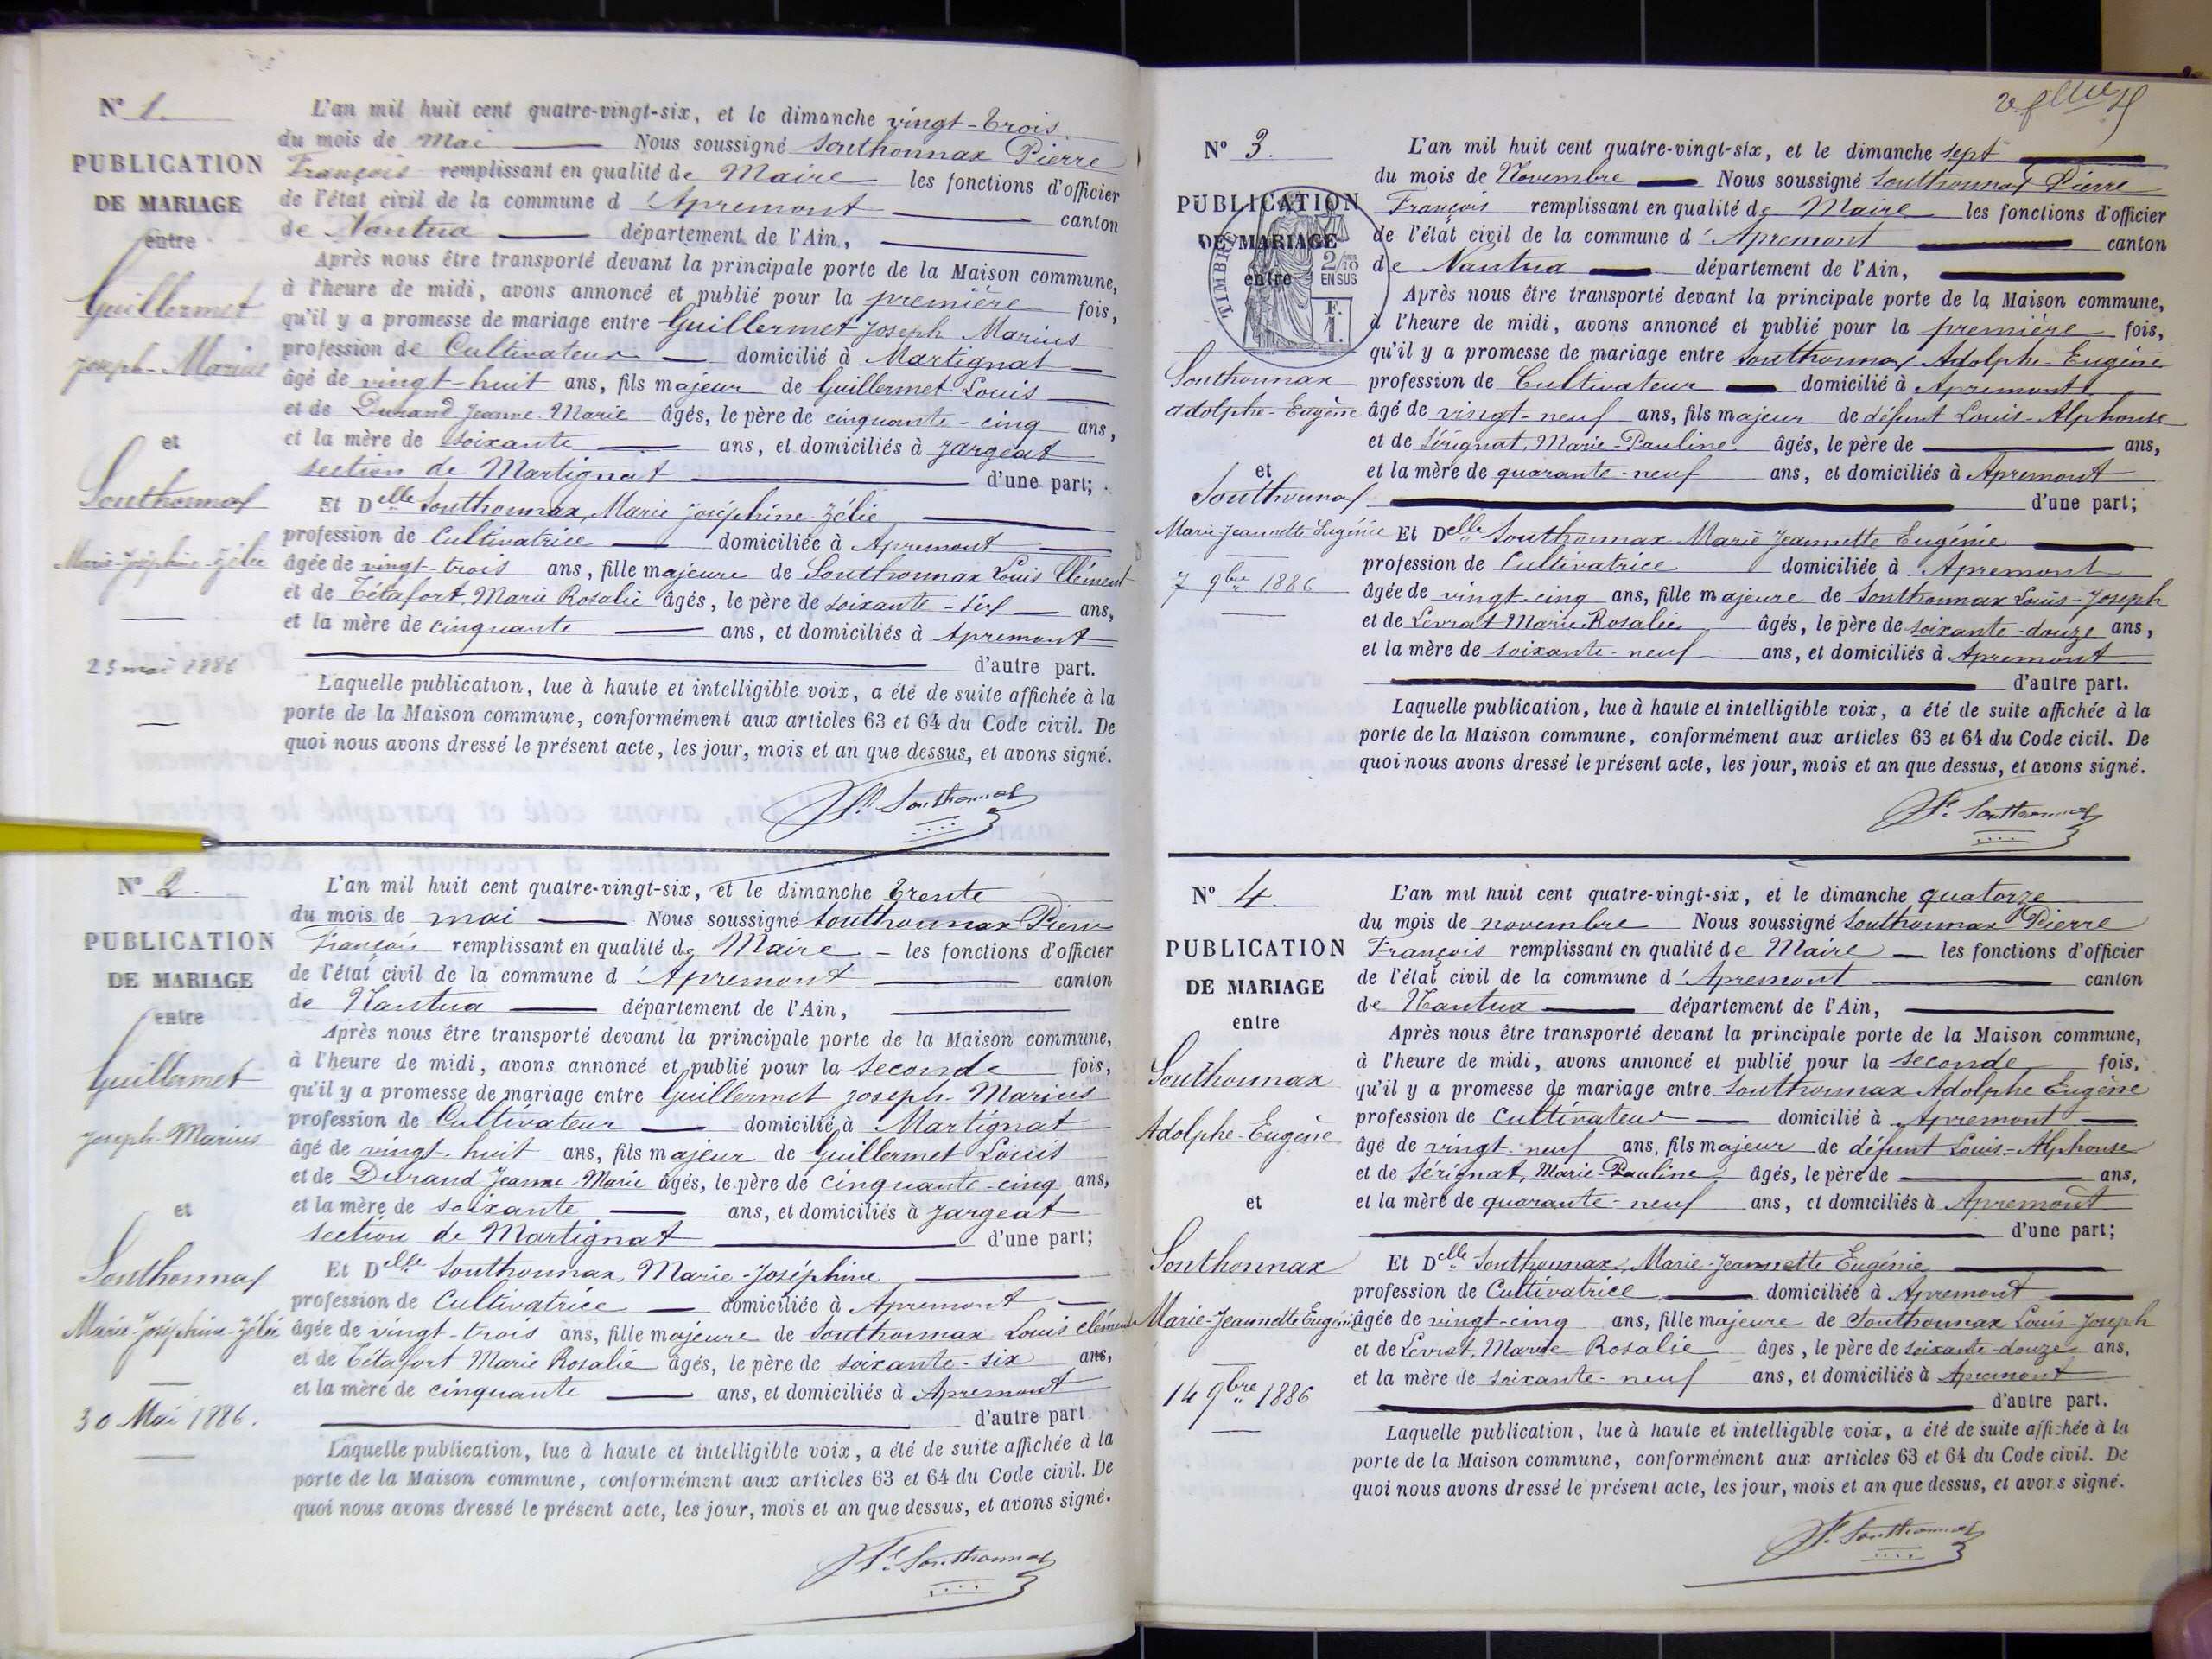 N° 1.
PUBLICATION
DE MARIAGE
entre
Guillermet
Joseph-Marius
et
Southonnax
Marie-Joséphine-Zélie
23 mai 1886
L'an mil huit cent quatre-vingt-six, et le dimanche vingt-trois
du mois de Mai Nous soussigné Southonnax Pierre
François remplissant en qualité de Maire les fonctions d'officier
de l'état civil de la commune d'Apremont canton
de Nantua département de l'Ain,
Après nous être transporté devant la principale porte de la Maison commune,
à l'heure de midi, avons annoncé et publié pour la première fois,
qu'il y a promesse de mariage entre Guillermet Joseph Marius
profession de Cultivateur domicilié à Martignat
âgé de vingt-huit ans, fils majeur de Guillermet Louis
et de Durand Jeanne-Marie âgés, le père de cinquante-cinq ans,
et la mère de soixante ans, et domiciliés à Jargeat
section de Martignat d'une part;
Et Delle Southonnax, Marie Joséphine Zélie
profession de Cultivatrice domiciliée à Apremont
âgée de vingt-trois ans, fille majeure de Southonnax Louis Clément
et de Tétafort, Marie Rosalie âgés, le père de soixante-six ans,
et la mère de cinquante ans, et domiciliés à Apremont
d'autre part.
Laquelle publication, lue à haute et intelligible voix, a été de suite affichée à la
porte de la Maison commune, conformément aux articles 63 et 64 du Code civil. De
quoi nous avons dressé le présent acte, les jour, mois et an que dessus, et avons signé.
Southonnax
N° 2.
PUBLICATION
DE MARIAGE
entre
Guillermet
Joseph-Marius
et
Southonnax
Marie-Joséphine-Zélie
30 Mai 1886.
L'an mil huit cent quatre-vingt-six, et le dimanche trente
du mois de mai Nous soussigné Southonnax Pierre
François remplissant en qualité de Maire les fonctions d'officier
de l'état civil de la commune d'Apremont canton
de Nantua département de l'Ain,
Après nous être transporté devant la principale porte de la Maison commune,
à l'heure de midi, avons annoncé et publié pour la seconde fois,
qu'il y a promesse de mariage entre Guillermet Joseph-Marius
profession de Cultivateur domicilié à Martignat
âgé de vingt-huit ans, fils majeur de Guillermet Louis
et de Durand Jeanne-Marie âgés, le père de cinquante-cinq ans,
et la mère de soixante ans, et domiciliés à Jargeat
section de Martignat d'une part;
Et Delle Southonnax, Marie-Joséphine
profession de Cultivatrice domiciliée à Apremont
âgée de vingt-trois ans, fille majeure de Southonnax Louis Clément
et de Tétafort Marie Rosalie âgés, le père de soixante-six ans,
et la mère de cinquante ans, et domiciliés à Apremont
d'autre part
Laquelle publication, lue à haute et intelligible voix, a été de suite affichée à la
porte de la Maison commune, conformément aux articles 63 et 64 du Code civil. De
quoi nous avons dressé le présent acte, les jour, mois et an que dessus, et avons signé.
Southonnax
N° 3.
PUBLICATION
DE MARIAGE
entre
TIMBRE
2/10
EN SUS
F.
1.
Southonnax
Adolphe-Eugène
et
Southonnax
Marie Jeannette Eugénie
7 9bre 1886
L'an mil huit cent quatre-vingt-six, et le dimanche sept
du mois de Novembre Nous soussigné Southonnax Pierre
François remplissant en qualité de Maire les fonctions d'officier
de l'état civil de la commune d'Apremont canton
de Nantua département de l'Ain,
Après nous être transporté devant la principale porte de la Maison commune,
à l'heure de midi, avons annoncé et publié pour la première fois,
qu'il y a promesse de mariage entre Southonnax Adolphe-Eugène
profession de Cultivateur domicilié à Apremont
âgé de vingt-neuf ans, fils majeur de défunt Louis-Alphonse
et de Sérignat, Marie-Pauline âgés, le père de ans,
et la mère de quarante-neuf ans, et domiciliés à Apremont
d'une part;
Et Delle Southonnax Marie Jeannette Eugénie
profession de Cultivatrice domiciliée à Apremont
âgée de vingt-cinq ans, fille majeure de Southonnax Louis-Joseph
et de Levrat Marie Rosalie âgés, le père de soixante-douze ans,
et la mère de soixante-neuf ans, et domiciliés à Apremont
d'autre part.
Laquelle publication, lue à haute et intelligible voix, a été de suite affichée à la
porte de la Maison commune, conformément aux articles 63 et 64 du Code civil. De
quoi nous avons dressé le présent acte, les jour, mois et an que dessus, et avons signé.
Southonnax
N° 4.
PUBLICATION
DE MARIAGE
entre
Southonnax
Adolphe-Eugène
et
Southonnax
Marie-Jeannette Eugénie
14 9bre 1886
L'an mil huit cent quatre-vingt-six, et le dimanche quatorze
du mois de novembre Nous soussigné Southonnax Pierre
François remplissant en qualité de Maire les fonctions d'officier
de l'état civil de la commune d'Apremont canton
de Nantua département de l'Ain,
Après nous être transporté devant la principale porte de la Maison commune,
à l'heure de midi, avons annoncé et publié pour la seconde fois,
qu'il y a promesse de mariage entre Southonnax Adolphe Eugène
profession de Cultivateur domicilié à Apremont
âgé de vingt-neuf ans, fils majeur de défunt Louis-Alphonse
et de Sérignat, Marie-Pauline âgés, le père de ans,
et la mère de quarante-neuf ans, et domiciliés à Apremont
d'une part;
Et Delle Southonnax, Marie-Jeannette Eugénie
profession de Cultivatrice domiciliée à Apremont
âgée de vingt-cinq ans, fille majeure de Southonnax Louis-Joseph
et de Levrat, Marie Rosalie âgés, le père de soixante-douze ans,
et la mère de soixante-neuf ans, et domiciliés à Apremont
d'autre part.
Laquelle publication, lue à haute et intelligible voix, a été de suite affichée à la
porte de la Maison commune, conformément aux articles 63 et 64 du Code civil. De
quoi nous avons dressé le présent acte, les jour, mois et an que dessus, et avons signé.
Southonnax